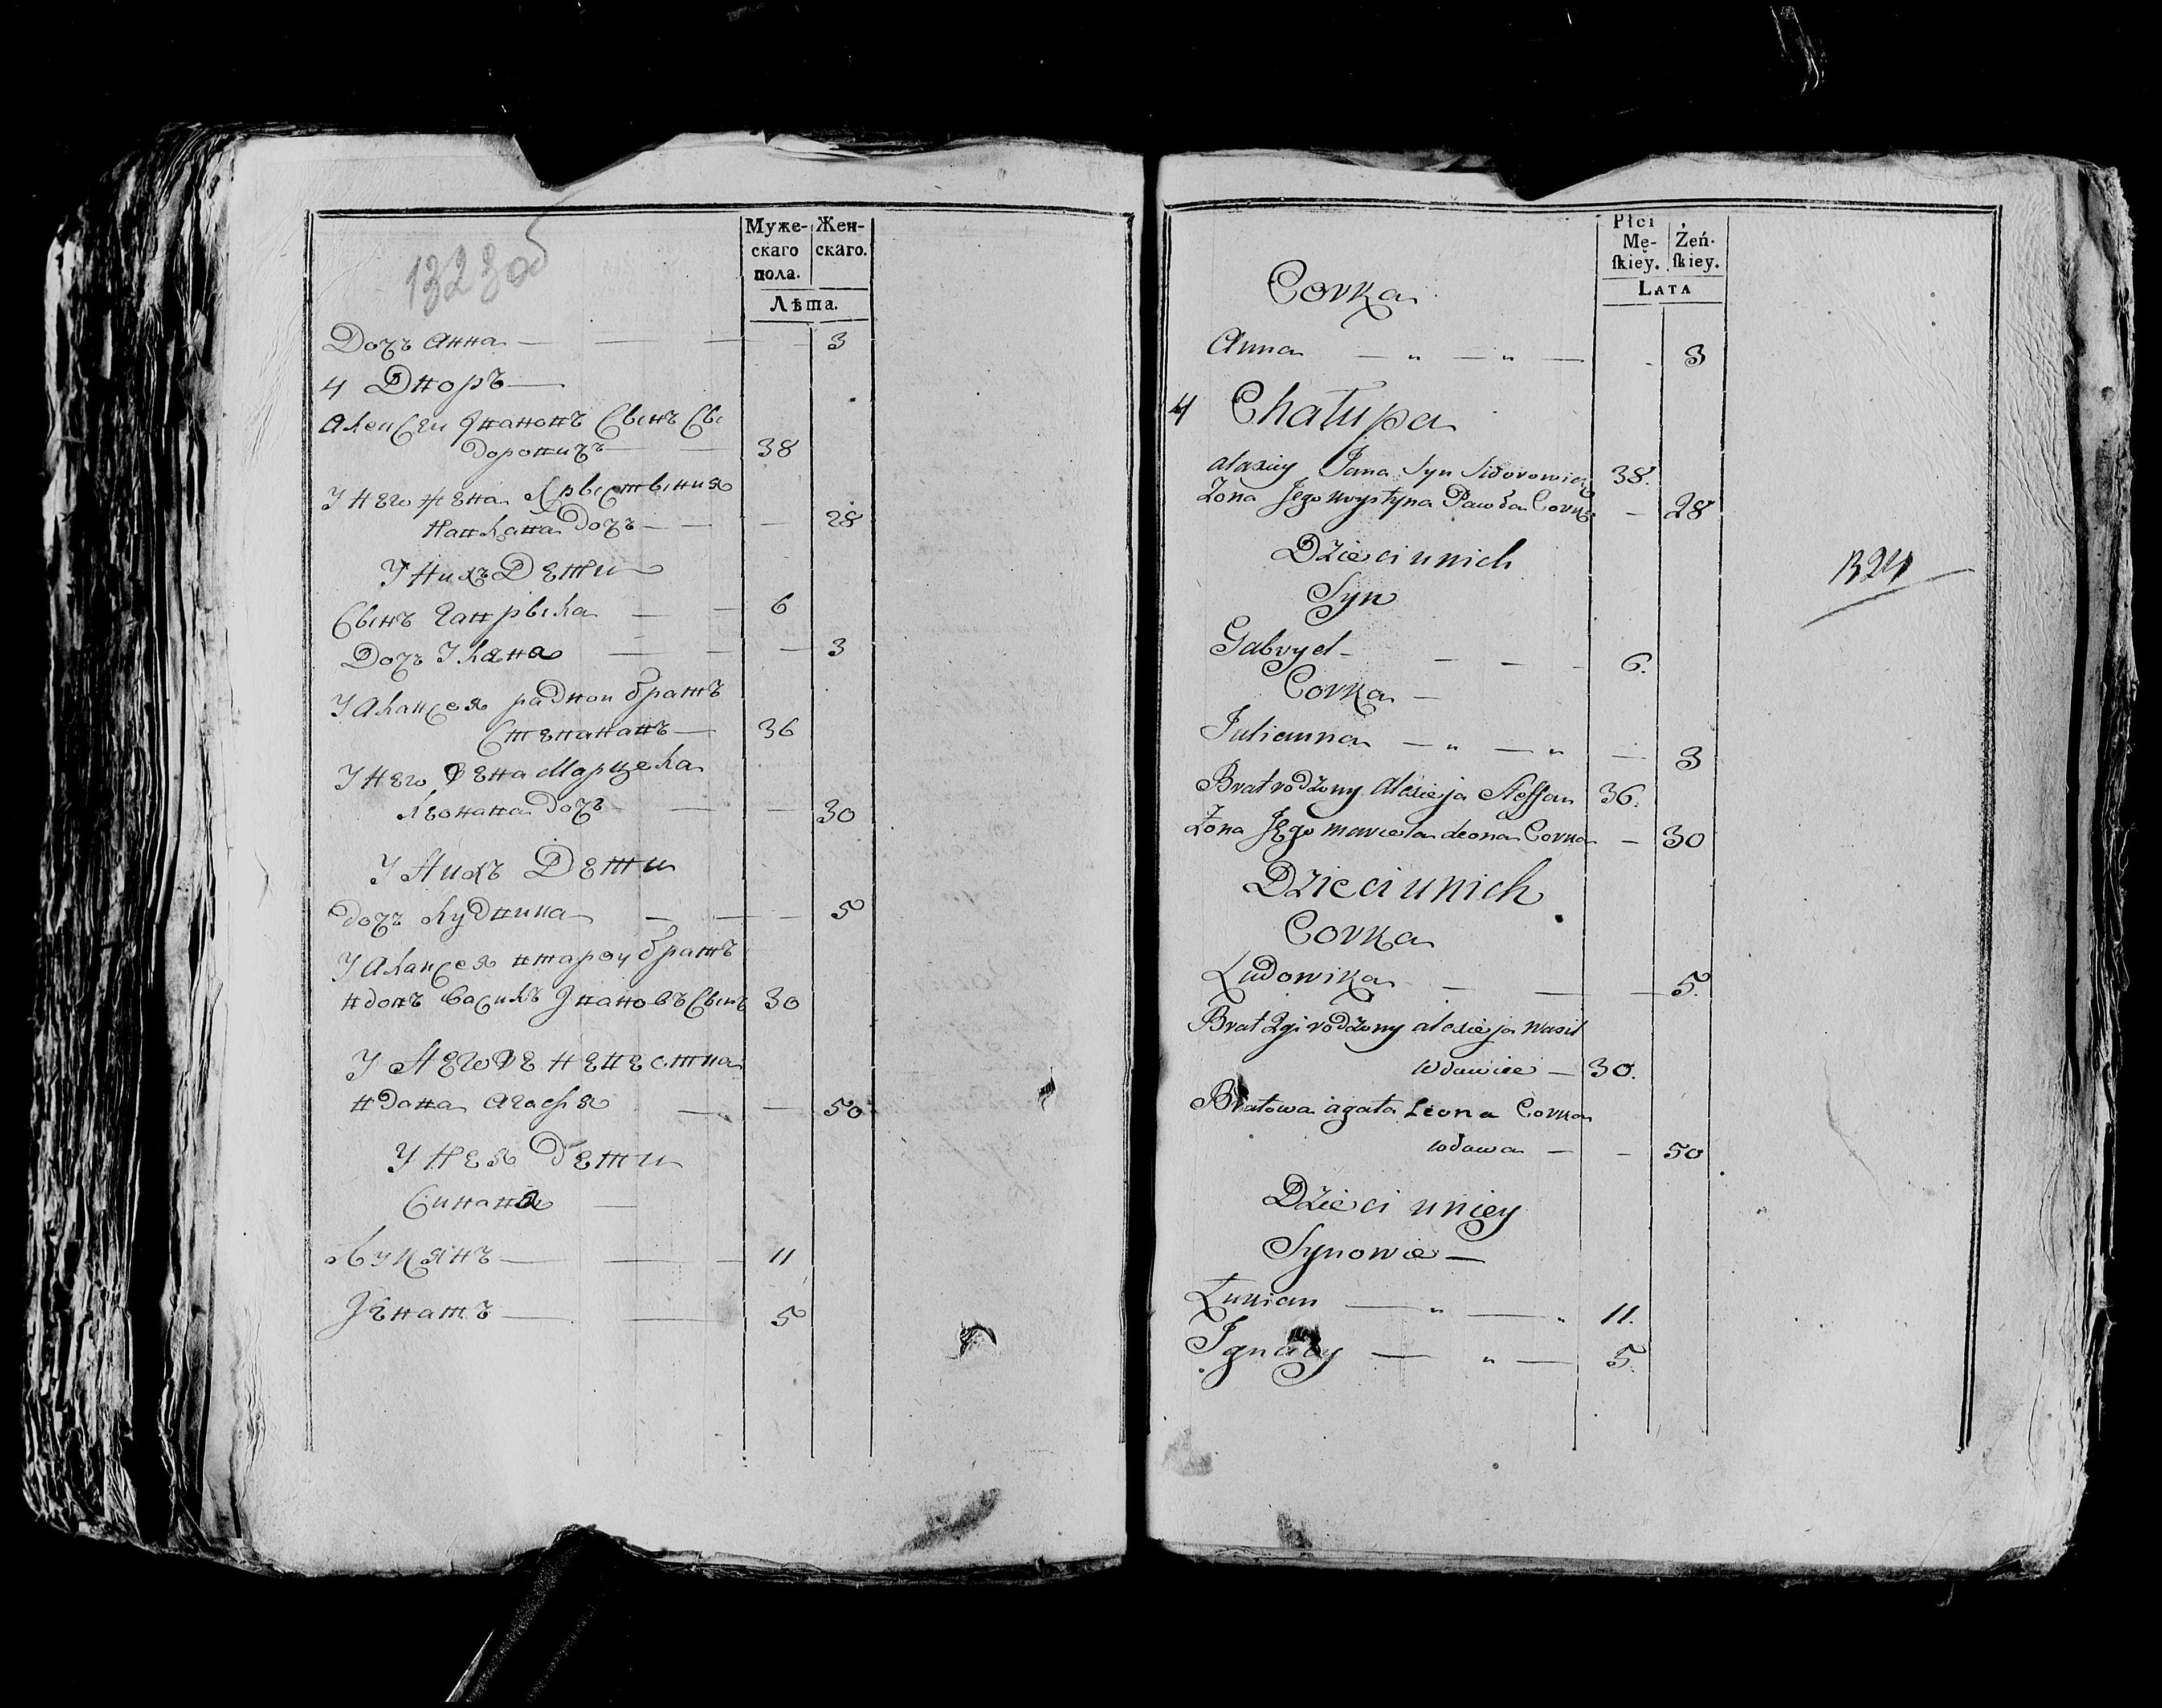 1323об
Муже- Жен-
скаго скаго.
пола.
Лѣта.
Дочъ Анна — — — 3
4 Дворъ —
Алексеи Ивановъ Сынъ Сы
дорович — — 38
У Него жена Крыстыния
Павлова Дочъ — — — 28
У Нихъ Дети
Сынъ Гаврыла — — 6
Дочъ Улана — — — 3
У Алаксея радной братъ
Степананъ — 36
У Него Жена Марцела
Леонана дочъ — — 30
У Нихъ Дети
дочъ Лудвика — — — 5
У Алаксея втарой братъ
вдовъ Василъ Ивановъ Сынъ 30
У Него Же Невестка
вдова Агафя — — 50
У Нея дети
Синавя —
Лукянъ — — — 11
Игнатъ — — 5
Płci
Mę- Żeń-
ſkiey. ſkiey.
Lata
Corka
Anna — „ — „ — 3
4 Chałupa
Alexiey Jana Syn Sidorowicz 38.
Żona Jego Krystyna Pawła Corka — 28
Dzieci u nich
Syn
Gabryel — — — - 6.
Corka —
Julianna — „ — „ — 3
Brat rodzony Alexieja Steffan 36.
Żona Jego Marcela Leona Corka — 30
Dzieci u nich
Corka
Ludowika — — — 5.
Brat 2gi rodzony Alexieja Wasil
wdowiec — 30.
Bratowa Agata Leona Corka
wdowa — — 50
Dzieci u niey
Synowie —
Łukian — „ — „ 11.
Ignacy — „ — 5.
1324